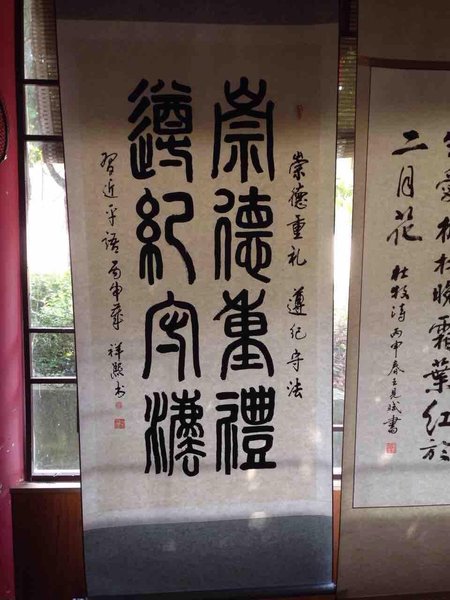 愛枫林晚霜葉红於
二月花
杜牧詩 丙申春王見斌書
崇德重礼 遵纪守法
崇德重禮
遵紀守灋
習近平語 丙申 祥书